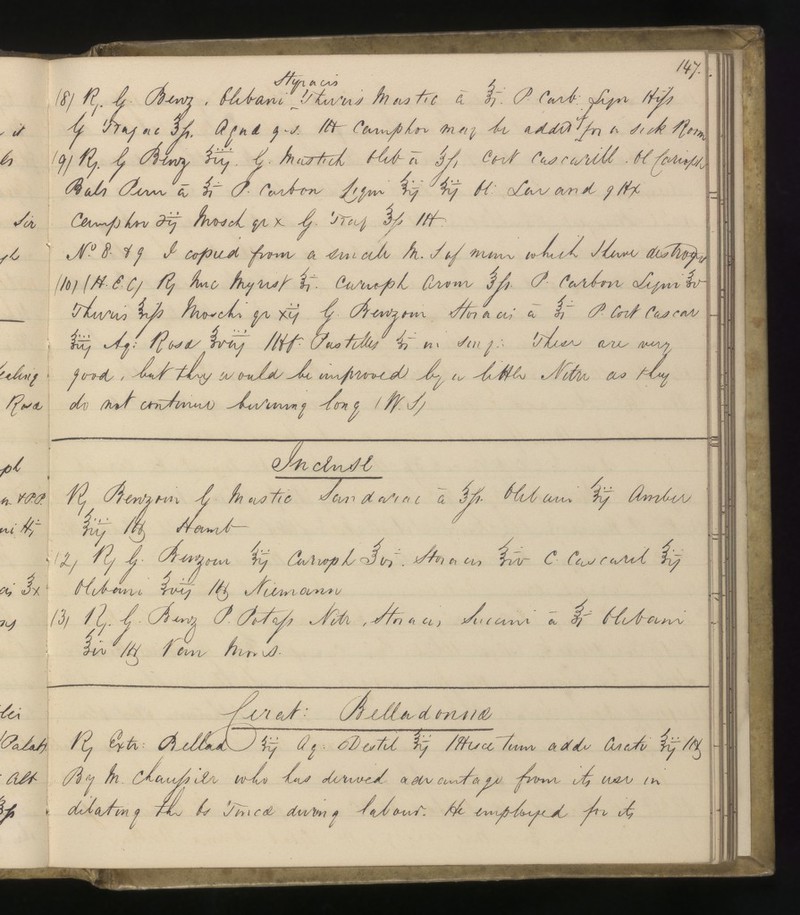 147.
Styracis
(8) ℞. G. Benz. Olibani Thuris Mastic ā ℥i. P. Carb. Lign ℔ij ſs
G Tragac ℥ſs. Aqua q.s. M Camphor may be added for a sick Room
(9) ℞. G Benz ℥iij. G. Mastich Olib ā ℥ſs Cort Cascarill. Ol Carioph
Bals Peru ā ℥i P. Carbon Ligni ℥ij ℥ij Ol: Lavand g
Camphor ʒij Mosch gr x G. Trag ℥ſs M
No. 8. & 9 I copied from a small M.S of mine which I have destroyed
(10) (H. E. C) ℞ Nuc Myrist ℥i. Carioph Arom ℥ſs. P. Carbon Ligni ℥v
Thuris ℥iſs Moschi gr xij G. Benzoin Storacis ā ℥i P. Cort Cascar
℥iij Aq: Rosæ ℥viij Mft. Pastilles ℥i in sing: These are very
good, but they would be improved by a little Nitre as they
do not continue burning long (W.S)
Incense
℞ Benzoin G Mastic Sandarac ā ℥ſs. Olibani ℥ij Amber
℥iij M Hamb
(2) ℞ G. Benzoin ℥ij Carioph ℥vi. Storacis ℥iv C. Cascaril ℥ij
Olibani ℥vij M Niemann
(3) ℞. G. Benz P. Potass Nitr, Storacis Succini ā ℥i Olibani
℥iv M Van Mons.
Cerat: Belladonnæ
℞ Extr: Bellad ℥ij Aq: Destil ℥ij Misce tum adde Cerati ℥ij M
By M. Chaussier who has derived advantage from its use in
dilating the Os Tincæ during labour. He employed for its
Sir
ealing
Rosæ
Palati
Alt